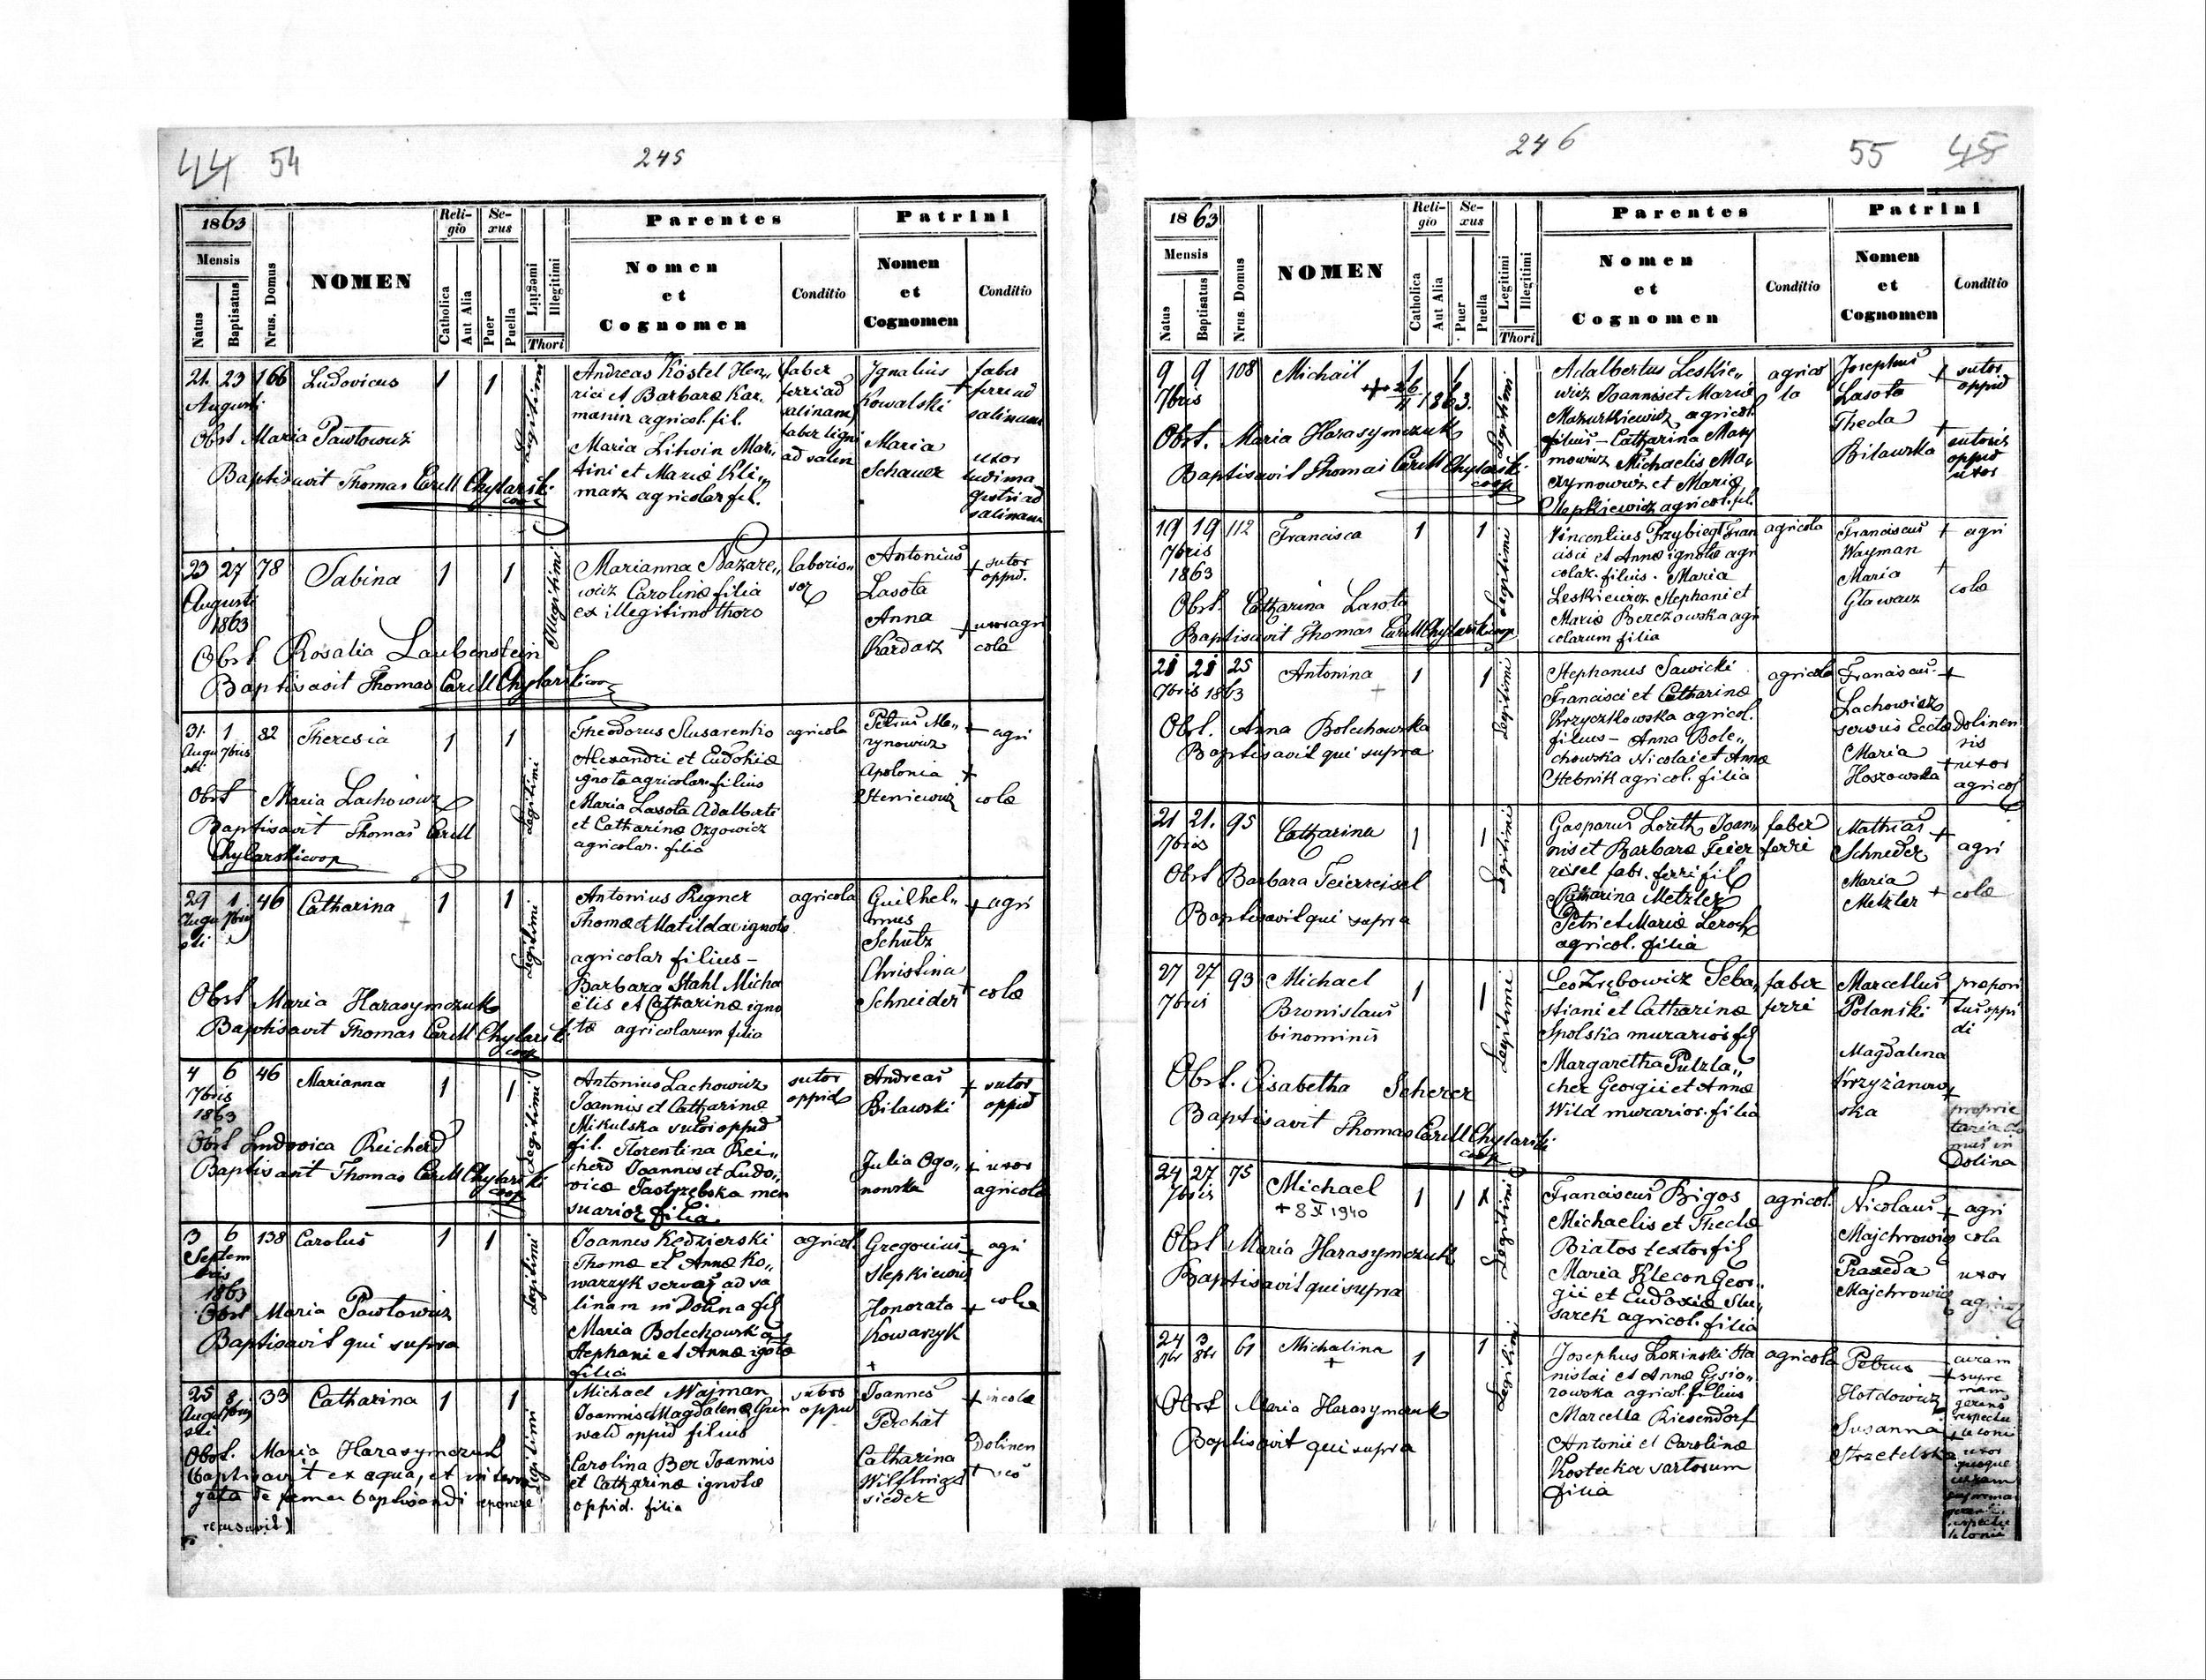 44 54 245
1863
Mensis
Natus
Baptisatus
Nrus. Domus
NOMEN
Reli-
gio
Catholica
Aut Alia
Se-
xus
Puer
Puella
Legitimi
Illegitimi
Thori
Parentes
Nomen
et
Cognomen
Conditio
Patrini
Nomen
et
Cognomen
Conditio
21. 23 166 Ludovicus 1 1
Augusti
Legitimi
Obst Maria Pawłowicz
Baptisavit Thomas Cyrill Chylarski
coop
Andreas Köstel Hen„
rici et Barbara Kar.
manin agricol. fil.
Maria Litwin Mar„
tini et Mariæ Kli„
marz agricolar fil.
faber
ferri ad
salinam
faber ligni
ad salin
Ignatius
Kowalski +
Maria
Schauer
faber
ferri ad
salinam
uxor
ludima
gistri ad
salinam
23 27 78 Sabina 1 1
Augusti
1863
Illegitimi
Obst Rosalia Laubenstein
Baptisavit Thomas Cyrill Chylarski coop
Marianna Nazare„
wicz Carolinæ filia
ex illegitimo thoro
laboris„
sor
Antonius
Lasota
Anna
Kardasz
+ sutor
oppid.
+ uxor agri
colæ
31. 1 82 Theresia 1 1
Augu 7bris
sti
Legitimi
Obst Maria Lachowicz
Baptisavit Thomas Cyrill
Chylarski coop
Theodorus Slusarenko
Alexandri et Eudokiæ
ignotæ agricolar. filius
Maria Lasota Adalberti
et Catharinæ Ozgowicz
agricolar. filia
agricola
Petrus Ma„
rynowicz
Apolonia
Steniewicz
+ agri
+
colæ
29 1 46 Catharina 1 1
Augu 7bris
sti
Legitimi
Obst Maria Harasymczuk
Baptisavit Thomas Cyrill Chylarski
coop
Antonius Regner
Thomæ et Matildæ ignotæ
agricolar filius –
Barbara Stahl Micha
ëlis et Catharinæ igno
tæ agricolarum filia
agricola
Guilhel„
mus
Schütz
Christina
Schneider
+ agri
+ colæ
4 6 46 Marianna 1 1
7bris
1863
Legitimi
Obst Ludovica Reicherd
Baptisavit Thomas Cyrill Chylarski
coop
Antonius Lachowicz
Joannis et Catharinæ
Mikulska sutor oppid
fil. Florentina Rei„
cherd Joannis et Ludo„
vicæ Jastrzębska men
suarior filia.
sutor
oppid
Andreas
Bilawski
Julia Ogo„
nowska
+ sutor
oppid
+ uxor
agricolæ
3 6 138 Carolus 1 1
Septem
bris
1863
Legitimi
Obst Maria Pawłowicz
Baptisavit qui supra
Joannes Kędzierski
Thomæ et Annæ Ko„
warzyk servaj ad sa
linam in Dolina fil
Maria Bolechowska
Stephani et Annæ ignotæ
filia
agricol.
Gregorius
Stepkiewicz
Honorata
Kowarzyk
+
+ agri
+ colæ
25 8 33 Catharina 1 1
Augu 7bris
sti
Legitimi
Obst. Maria Harasymczuk
(baptisavit ex aqua, et interro
gata de forma baptisandi eponere
recusavit)
Michael Wajman
Joannis et Magdalenæ Grün
wald oppid filius
Carolina Ber Joannis
et Catharinæ ignotæ
oppid. filia
sutor
oppid
Joannes
Perchat
Catharina
Wilflings
sieder
+ incolæ
Dolinen
+ ses
246 55 45
1863
Mensis
Natus
Baptisatus
Nrus. Domus
NOMEN
Reli-
gio
Catholica
Aut Alia
Se-
xus
Puer
Puella
Legitimi
Illegitimi
Thori
Parentes
Nomen
et
Cognomen
Conditio
Patrini
Nomen
et
Cognomen
Conditio
9 9 108 Michaël 1 1
7bris
++ 26/11 1863.
Legitimi
Obst. Maria Harasymczuk
Baptisavit Thomas Cyrill Chylarski
coop
Adalbertus Leskie„
wicz Joannis et Mariæ
Mazurkiewicz agricol.
filius – Catharina Mary
mowicz Michaelis Ma„
rymowicz et Mariæ
Stepkiewicz agricol. fil.
agrico
la
Josephus
Lasota
Thecla
Bilawska
+ sutor
oppid
+
sutoris
oppid
uxor
19 19 112 Francisca 1 1
7bris
1863
Legitimi
Obst. Catharina Lasota
Baptisavit Thomas Cyrill Chylarski coop
Vincentius Przybiegł Fran
cisci et Annæ ignotæ agri
colar. filius. Maria
Leskiewicz Stephani et
Mariæ Berezowska agri
colarum filia
agricola
Franciscus
Wayman
Maria
Gławacz
+ agri
+
colæ
21 21 25 Antonina 1 1
7bris 1863
Legitimi
Obst. Anna Bolechowska
Baptisavit qui supra
Stephanus Sawicki
Francisci et Catharinæ
Krzyczkowska agricol.
filius – Anna Bole„
chowska Nicolai et Annæ
Stebnik agricol. filia
agricola
Franciscus +
Lachowicz
servus Eccl Dolinen
sis
Maria
Hoszowska
+ uxor
agricol
21 21. 95 Catharina 1 1
7bris
Legitimi
Obst Barbara Feierreisel
Baptisavit qui supra
Gasparus Loreth Joan„
nis et Barbaræ Feier
reisel fabr. ferri fil
Catharina Metzler
Petri et Mariæ Leroch
agricol. filia
faber
ferri
Mathias
Schneder
Maria
Metzler
+ agri
+ colæ
27 27 93 Michael 1 1
7bris
Bronislaus
binominis
Legitimi
Obst. Elisabetha Scherer
Baptisavit Thomas Cyrill Chylarski
coop
Leo Zrębowicz Seba„
stiani et Catharinæ
Spolska murarior fil
Margaretha Putzla„
cher Georgii et Annæ
Wild murarior. filia
faber
ferri
Marcellus
Polanski
Magdalena
Krzyżanow
ska
+
proprie
taria do
mus in
Dolina
24 27. 75 Michael 1 1
7bris
+ 8 X 1940
Legitimi
Obst Maria Harasymczuk
Baptisavit qui supra
Franciscus Bigos
Michaelis et Theclæ
Białos textor fil
Maria Klecon Geor„
gii et Eudoxiæ Slu„
sarek agricol. filia
agricol.
Nicolaus
Majchrowicz
Praxeda
Majchrowicz
+ agri
cola
uxor
agricol
24 3 61 Michalina 1 1
7br 8br
+
Legitimi
Obst Maria Harasymczuk
Baptisavit qui supra
Josephus Lozinski Sta
nislai et Annæ Gąsio„
rowska agricol. filius
Marcella Kiesendorf
Antonii et Carolinæ
Kostecka sartorum
filia
agricola
Petrus
Hołdowicz
Susanna
Strzetelska
curam
+ supre
mam
gerens
respectu
+ uxor
quoque
curam